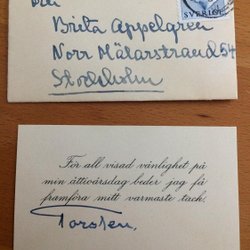 Brita Appelgren
Norr Mälarstrand 54
Stockholm
SVERIGE
För all visad vänlighet på
min åttioårsdag beder jag få
framföra mitt varmaste tack.
Torsten.